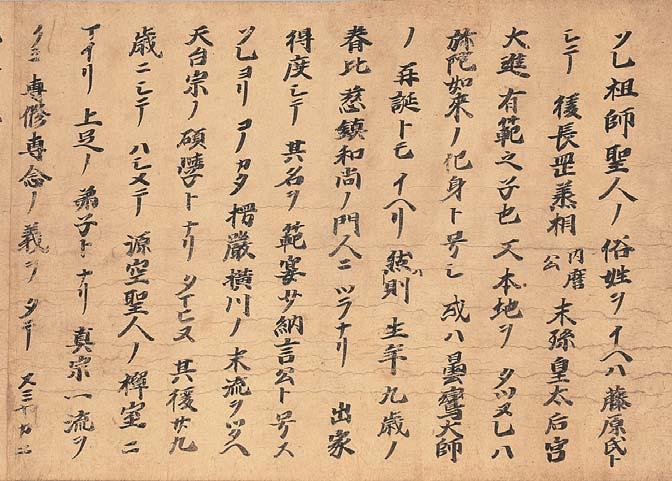 ソレ祖師聖人ノ俗姓ヲイヘハ藤原氏ト
シテ後長罡丞相内麿公末孫皇太后宮
大進有範之子也又本地ヲタツヌレハ
弥陀如来ノ化身ト号シ或ハ曇鸞大師
ノ再誕トモイヘリ然則生年九歳ノ
春比慈鎮和尚ノ門人ニツラナリ出家
得度シテ其名ヲ範宴少納言公ト号ス
ソレヨリコノカタ楞厳横川ノ末流ヲツタヘ
天台宗ノ碩学トナリタマヒヌ其後廿九
歳ニシテハシメテ源空聖人ノ禅室ニ
マイリ上足ノ弟子トナリ真宗一流ヲ
クミ専修専念ノ義ヲタテ